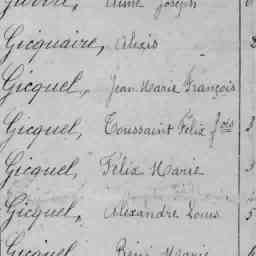 Aimé Joseph
Gicquaire, Alexis
Gicquel, Jean Marie François
Gicquel, Toussaint Félix fois
Gicquel, Félix Marie
Gicquel, Alexandre Louis
Gicquel, René Marie